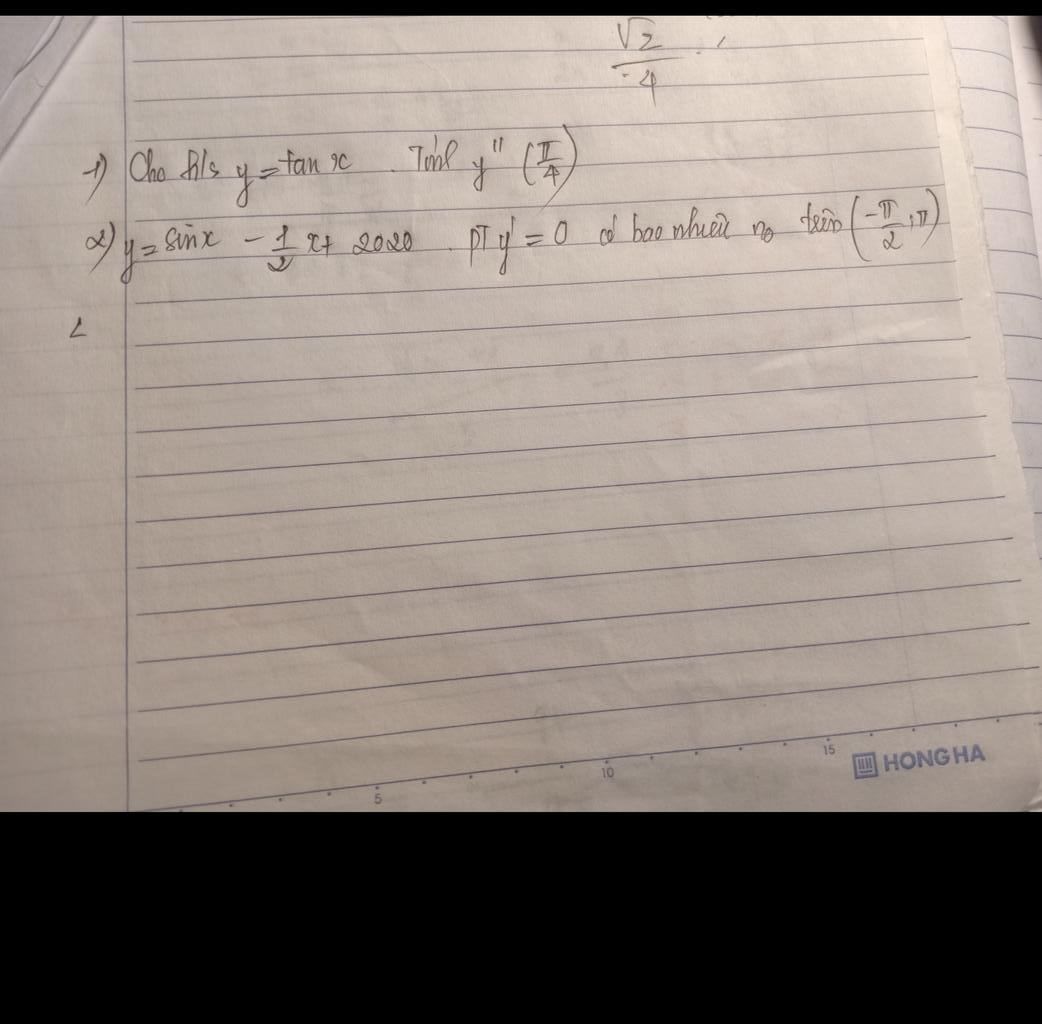 √2
-4
1) Cho h/s y = tan x . Tính y'' (π/4)
2) y = sin x - 1/2 x + 2020 . PT y' = 0 có bao nhiêu no trên (-π/2 ; π)
<
5
10
15
HONG HA